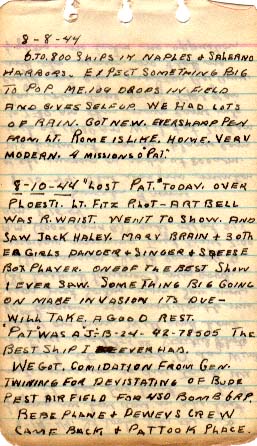 8-8-44
6 TO, 800 SHIPS IN NAPLES & SALERNO
HARBORS. EXPECT SOMETHING BIG
TO POP. ME.109 DROPS IN FIELD
AND GIVES SELF UP. WE HAD LOTS
OF RAIN. GOT NEW. EVERSHARP PEN
FROM LT. ROME IS LIKE. HOME. VERY
MODERN. 4 MISSIONS "PAT."
8-10-44 "LOST PAT." TODAY. OVER
PLOESTI. LT. FITZ PILOT - ART BELL
WAS R. WAIST. WENT TO SHOW. AND
SAW JACK HALEY. MARY BRAIN & 3 OTH
ER GIRLS DANCER & SINGER & SQEESE
BOX PLAYER. ONE OF THE BEST SHOW
I EVER SAW. SOMETHING BIG GOING
ON MABE INVASION ITS DUE-
WILL TAKE. A GOOD REST.
"PAT" WAS A J-B-24- 42-78505 THE
BEST SHIP I EVER HAD.
WE GOT. COMIDATION FROM GEN.
TWINING FOR DEVISTATING OF BUDE
PEST AIRFIELD FOR 450 BOMB GRP.
BEBE PLANE & DEWEYS CREW
CAME BACK & PAT TOOK PLACE.